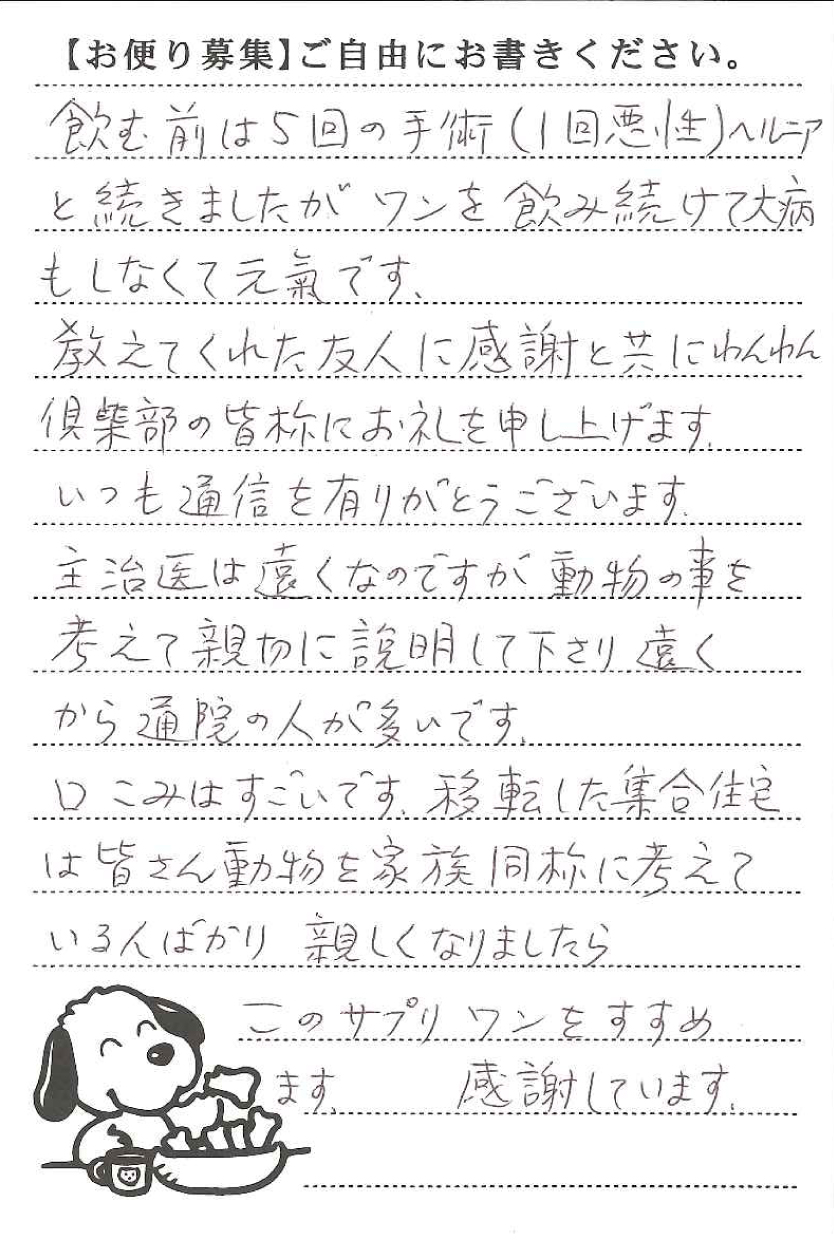 【お便り募集】ご自由にお書きください。
飲む前は5回の手術(1回悪性)ヘルニア
と続きましたが ワンを飲み続けて大病
もしなくて元氣です、
教えてくれた友人に感謝と共にわんわん
倶楽部の皆称にお礼を申し上げます。
いつも通信を有りがとうございます。
主治医は遠くなのですが動物の事を
考えて親切に説明して下さり遠く
から通院の人が多いです。
口こみはすごいです。移転した集合住宅
は皆さん動物を家族同称に考えて
いる人ばかり 親しくなりましたら
このサプリワンをすすめ
ます。 感謝しています。